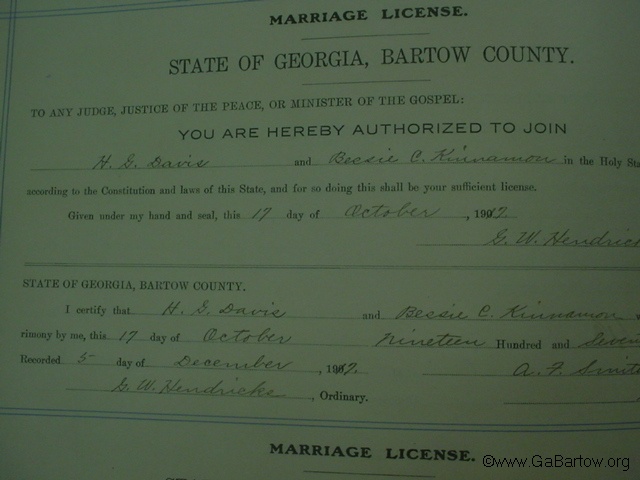 MARRIAGE LICENSE.
STATE OF GEORGIA, BARTOW COUNTY.
TO ANY JUDGE, JUSTICE OF THE PEACE, OR MINISTER OF THE GOSPEL:
YOU ARE HEREBY AUTHORIZED TO JOIN
H. G. Davis and Bessie C. Kinnamon in the Holy Sta
according to the Constitution and laws of this State, and for so doing this shall be your sufficient license.
Given under my hand and seal, this 17 day of October, 1917
G. W. Hendrick
STATE OF GEORGIA, BARTOW COUNTY.
I certify that H. G. Davis and Bessie C. Kinnamon
rimony by me, this 17 day of October Nineteen Hundred and Seven
Recorded 5 day of December, 1917. A. F. Smit
G. W. Hendricks, Ordinary.
MARRIAGE LICENSE.
©www.GaBartow.org